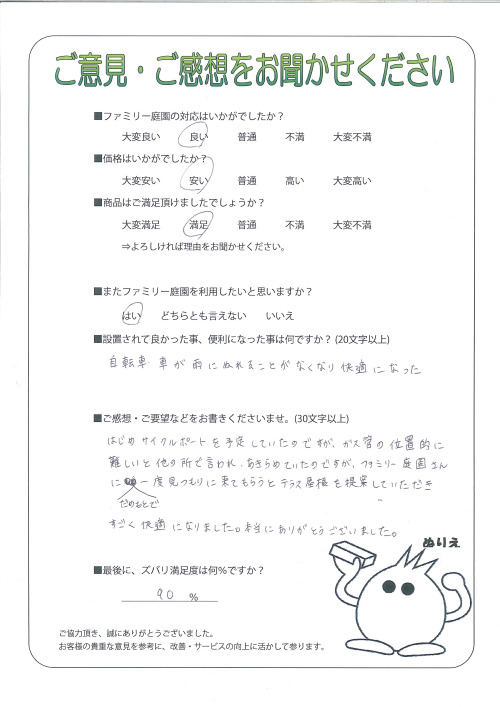 ご意見・ご感想をお聞かせください
■ファミリー庭園の対応はいかがでしたか？
大変良い 良い 普通 不満 大変不満
■価格はいかがでしたか？
大変安い 安い 普通 高い 大変高い
■商品はご満足頂けましたでしょうか？
大変満足 満足 普通 不満 大変不満
⇒よろしければ理由をお聞かせください。
■またファミリー庭園を利用したいと思いますか？
はい どちらとも言えない いいえ
■設置されて良かった事、便利になった事は何ですか？(20文字以上)
自転車・車が雨にぬれることがなくなり快適になった
■ご感想・ご要望などをお書きくださいませ。(30文字以上)
はじめサイクルポートを予定していたのですが、ガス管の位置的に
難しいと他の所で言われ、あきらめていたのですが、ファミリー庭園さん
に 一度見つもりに来てもらうとテラス屋根を提案していただき
だめもとで
すごく快適になりました。本当にありがとうございました。
ぬりえ
■最後に、ズバリ満足度は何％ですか？
90 ％
ご協力頂き、誠にありがとうございました。
お客様の貴重な意見を参考に、改善・サービスの向上に活かして参ります。